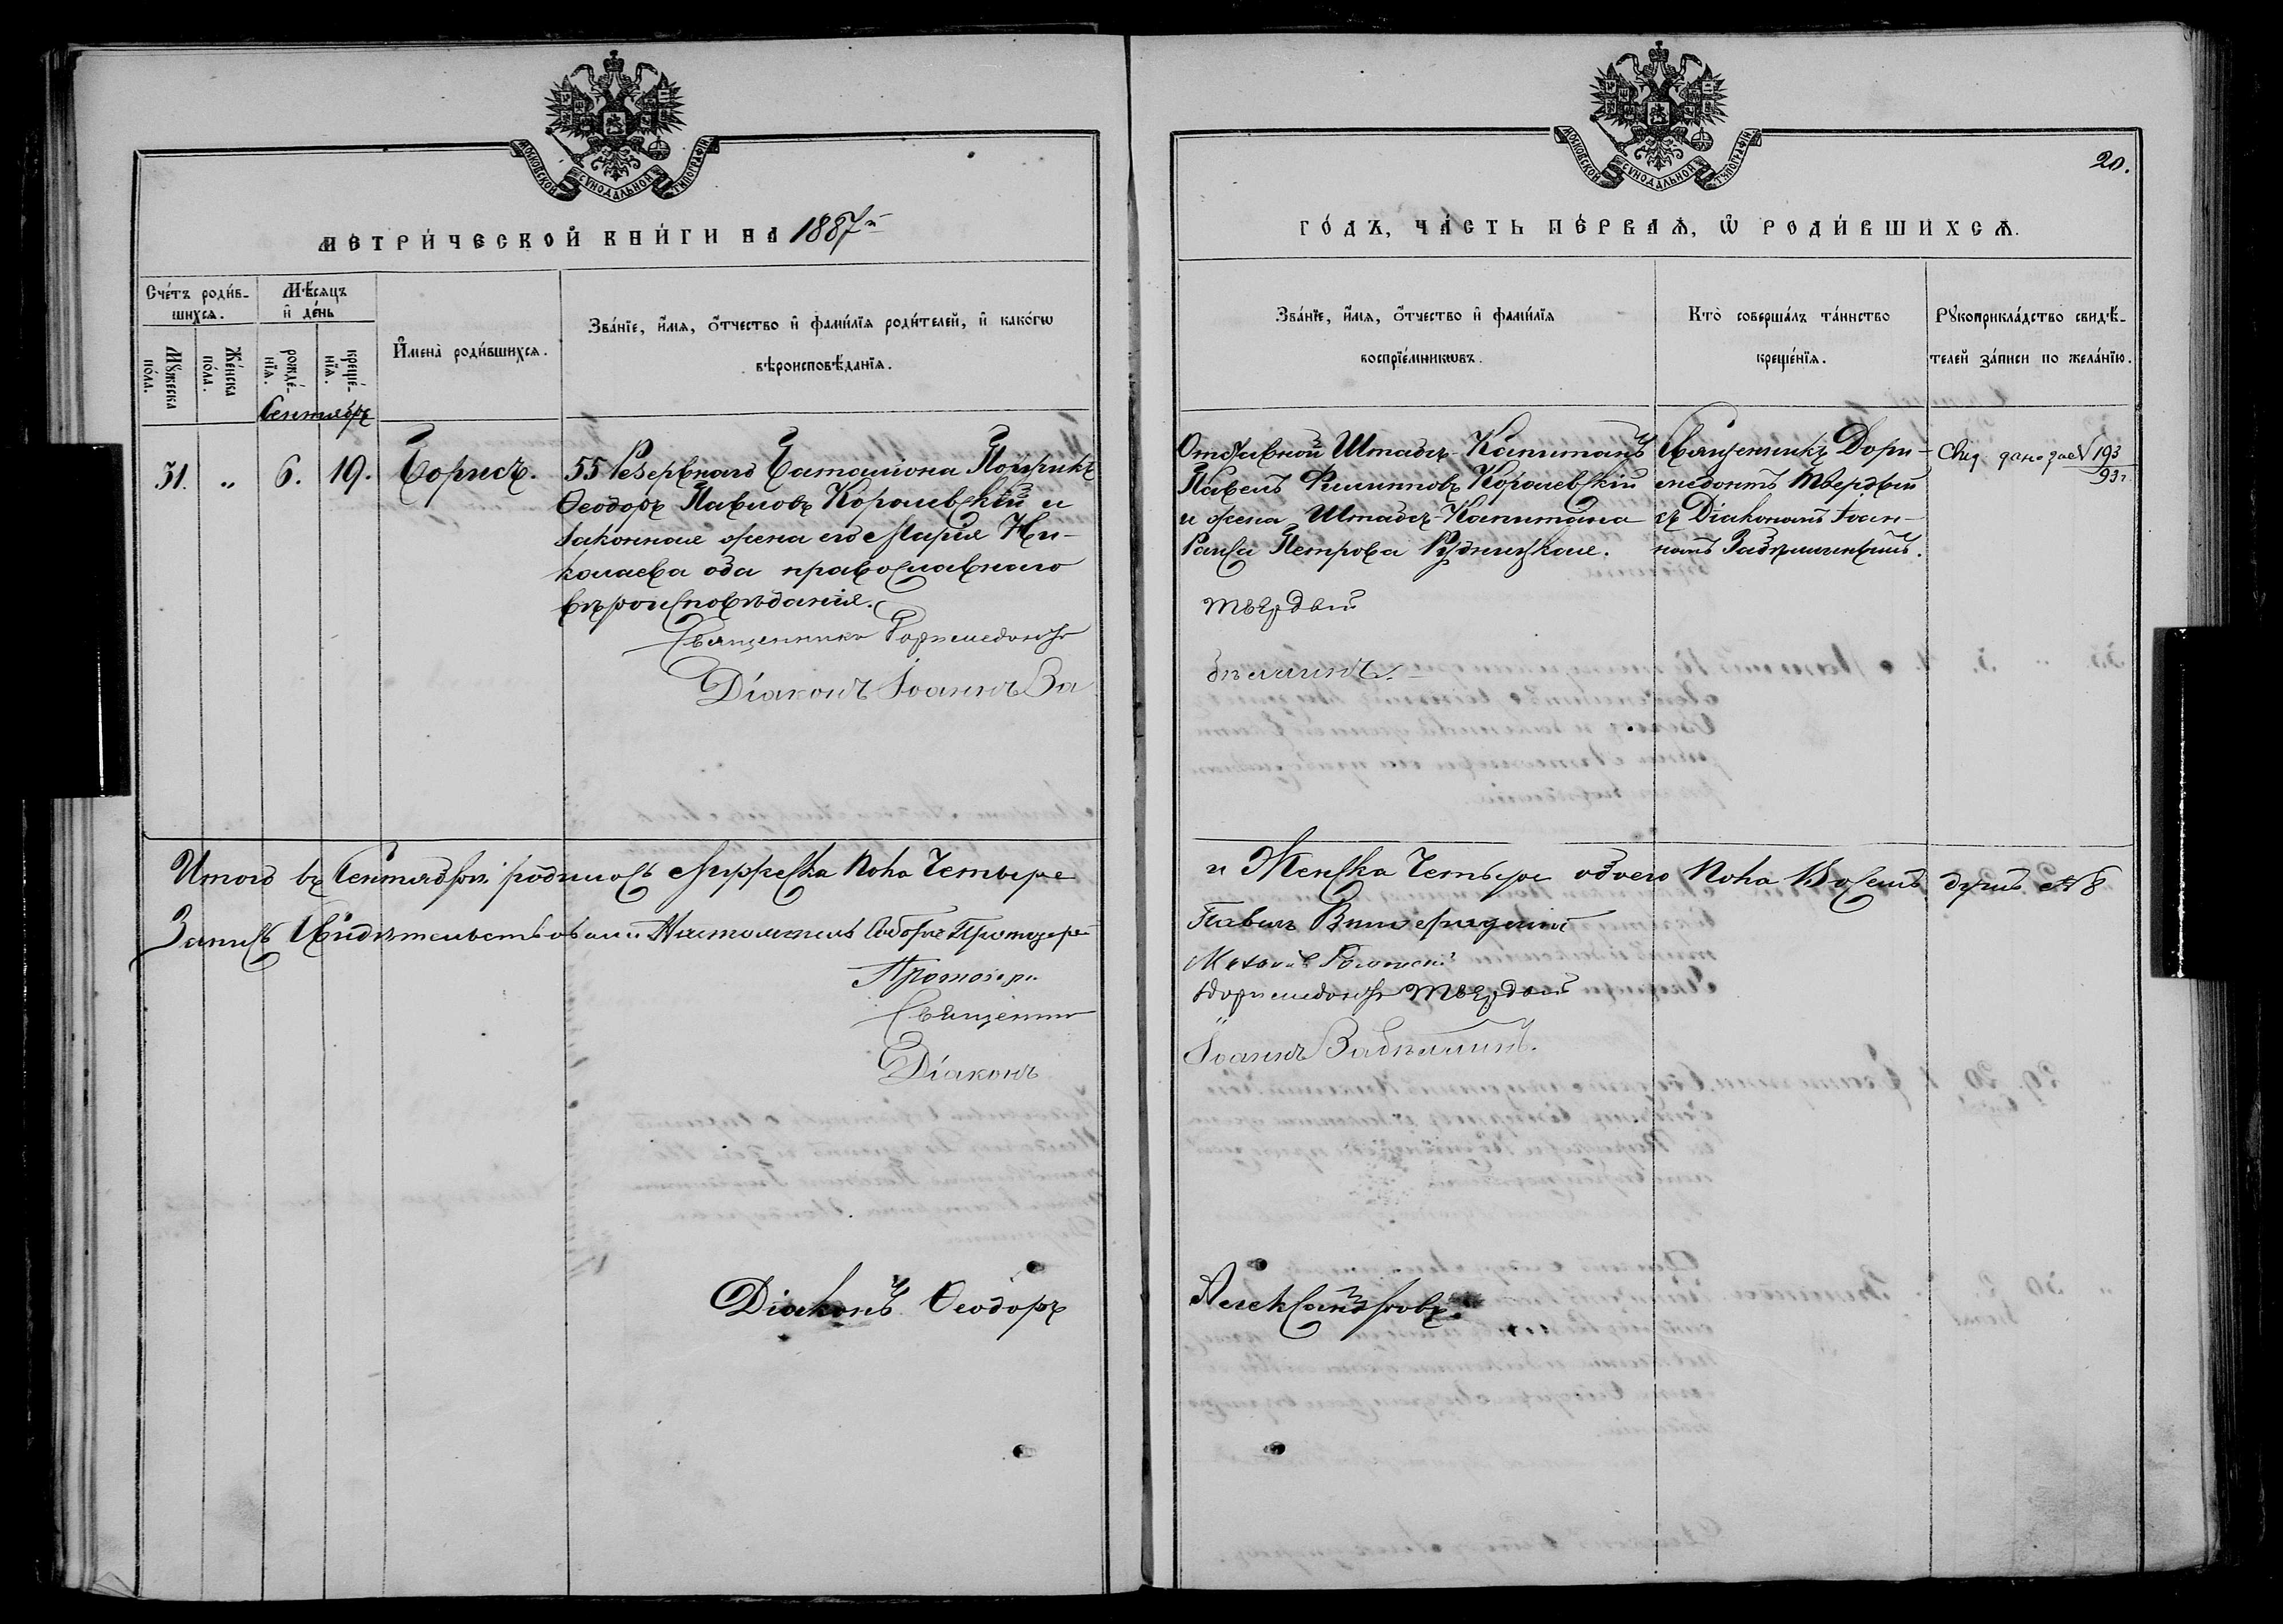 МОСКОВСКОЙ СѴНОДАЛЬНОЙ ТИПОГРАФІИ
МЕТРИ́ЧЕСКОЙ КНИ́ГИ НА 1887й
Сче́тъ роди́в-
шихсѧ.
Мѣ́сѧцъ
и҆ де́нь
Мꙋ́жеска
по́ла.
Же́нска
по́ла.
рожде́-
нїѧ.
креще́-
нїѧ.
И҆мена̀ роди́вшихсѧ.
Зва́нїе, и҆́мѧ, ѻ҆́тчество и҆ фами́лїѧ роди́телей, и҆ како́гѡ
вѣроисповѣ́данїѧ.
Сентябрь
31. „ 6. 19. Борисъ.
55 Резервнаго Баталіона Поручикъ
Ѳеодоръ Павловъ Королевскій и
законная жена его Марія Ни-
колаева оба православнаго
вѣроисповѣданія.
Священникъ Доримедонтъ
Діаконъ Іоаннъ За
Итого въ Сентябрѣ родилось Мужеска пола Четыре
Запись свидѣтельствовали: Настоятель Собора Протоіерей
Протоіер.
Священник
Діаконъ
Діаконъ Ѳеодоръ
МОСКОВСКОЙ СѴНОДАЛЬНОЙ ТИПОГРАФІИ
20.
ГО́ДЪ, ЧА́СТЬ ПЕ́РВАѦ, Ѽ РОДИ́ВШИХСѦ.
Зва́нїе, и҆́мѧ, ѻ҆́тчество и҆ фами́лїѧ
воспрїе́мникѡвъ.
Кто̀ соверша́лъ та́инство
креще́нїѧ.
Рꙋкоприкла́дство свидѣ́-
телей за́писи по жела́нїю.
Отставной Штабсъ-Капитанъ
Павелъ Филипповъ Королевскій
и жена Штабсъ-Капитана
Раиса Петрова Рудницкая.
Священникъ Дори-
медонтъ Твердый
съ Діакономъ Іоан-
номъ Забѣлинымъ.
Свид. дано за № 193
93 г.
Твердый
бѣлинъ.
и Женска Четыре обоего пола Восемь душъ № 8
Павелъ
Доримедонтъ Твердый
Іоаннъ Забѣлинъ.
Александровъ